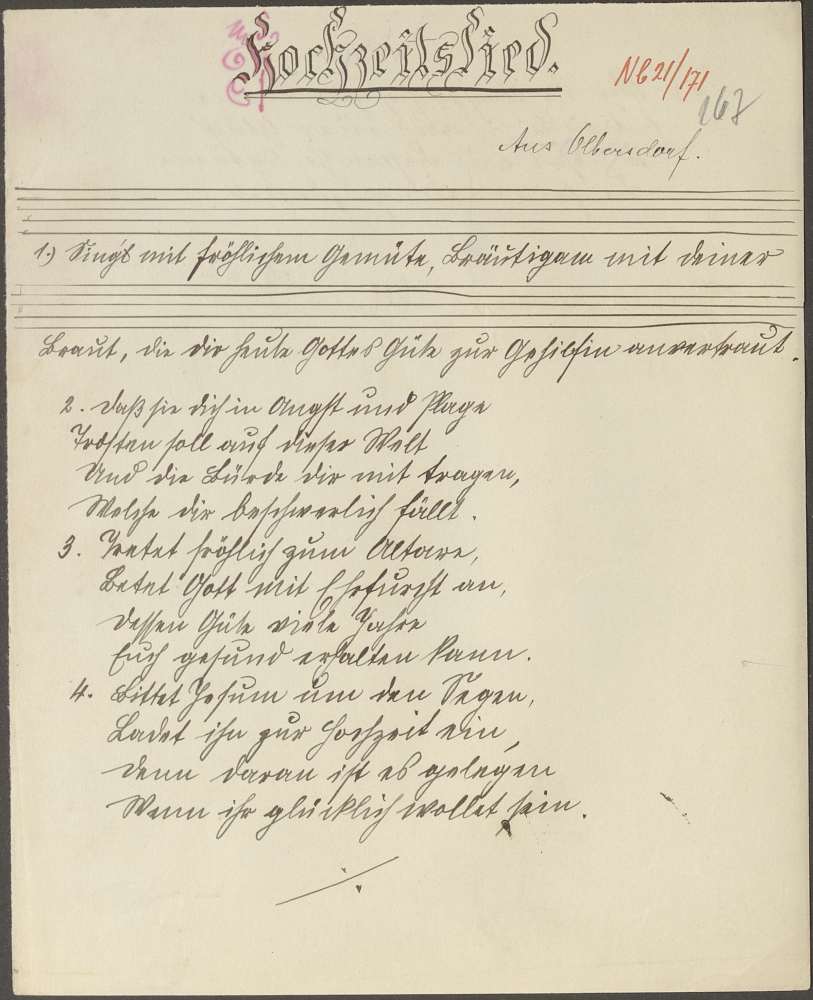 Hochzeitslied.
NB 21/171
167
Aus Olbersdorf.
1.) Singt mit fröhlichem Gemüte, Bräutigam mit deiner
Braut, die dir heute Gottes Güte zur Gehilfin anvertraut.
2. Daß sie dich in Angst und Plage
Trösten soll auf dieser Welt
Und die Bürde dir mit tragen,
Welche dir beschwerlich fällt.
3. Tretet fröhlich zum Altare,
Betet Gott mit Ehrfurcht an,
Dessen Güte viele Jahre
Euch gesund erhalten kann.
4. Bittet Jesum um den Segen,
Ladet ihn zur Hochzeit ein,
Denn daran ist es gelegen
Wenn ihr glücklich wollet sein.